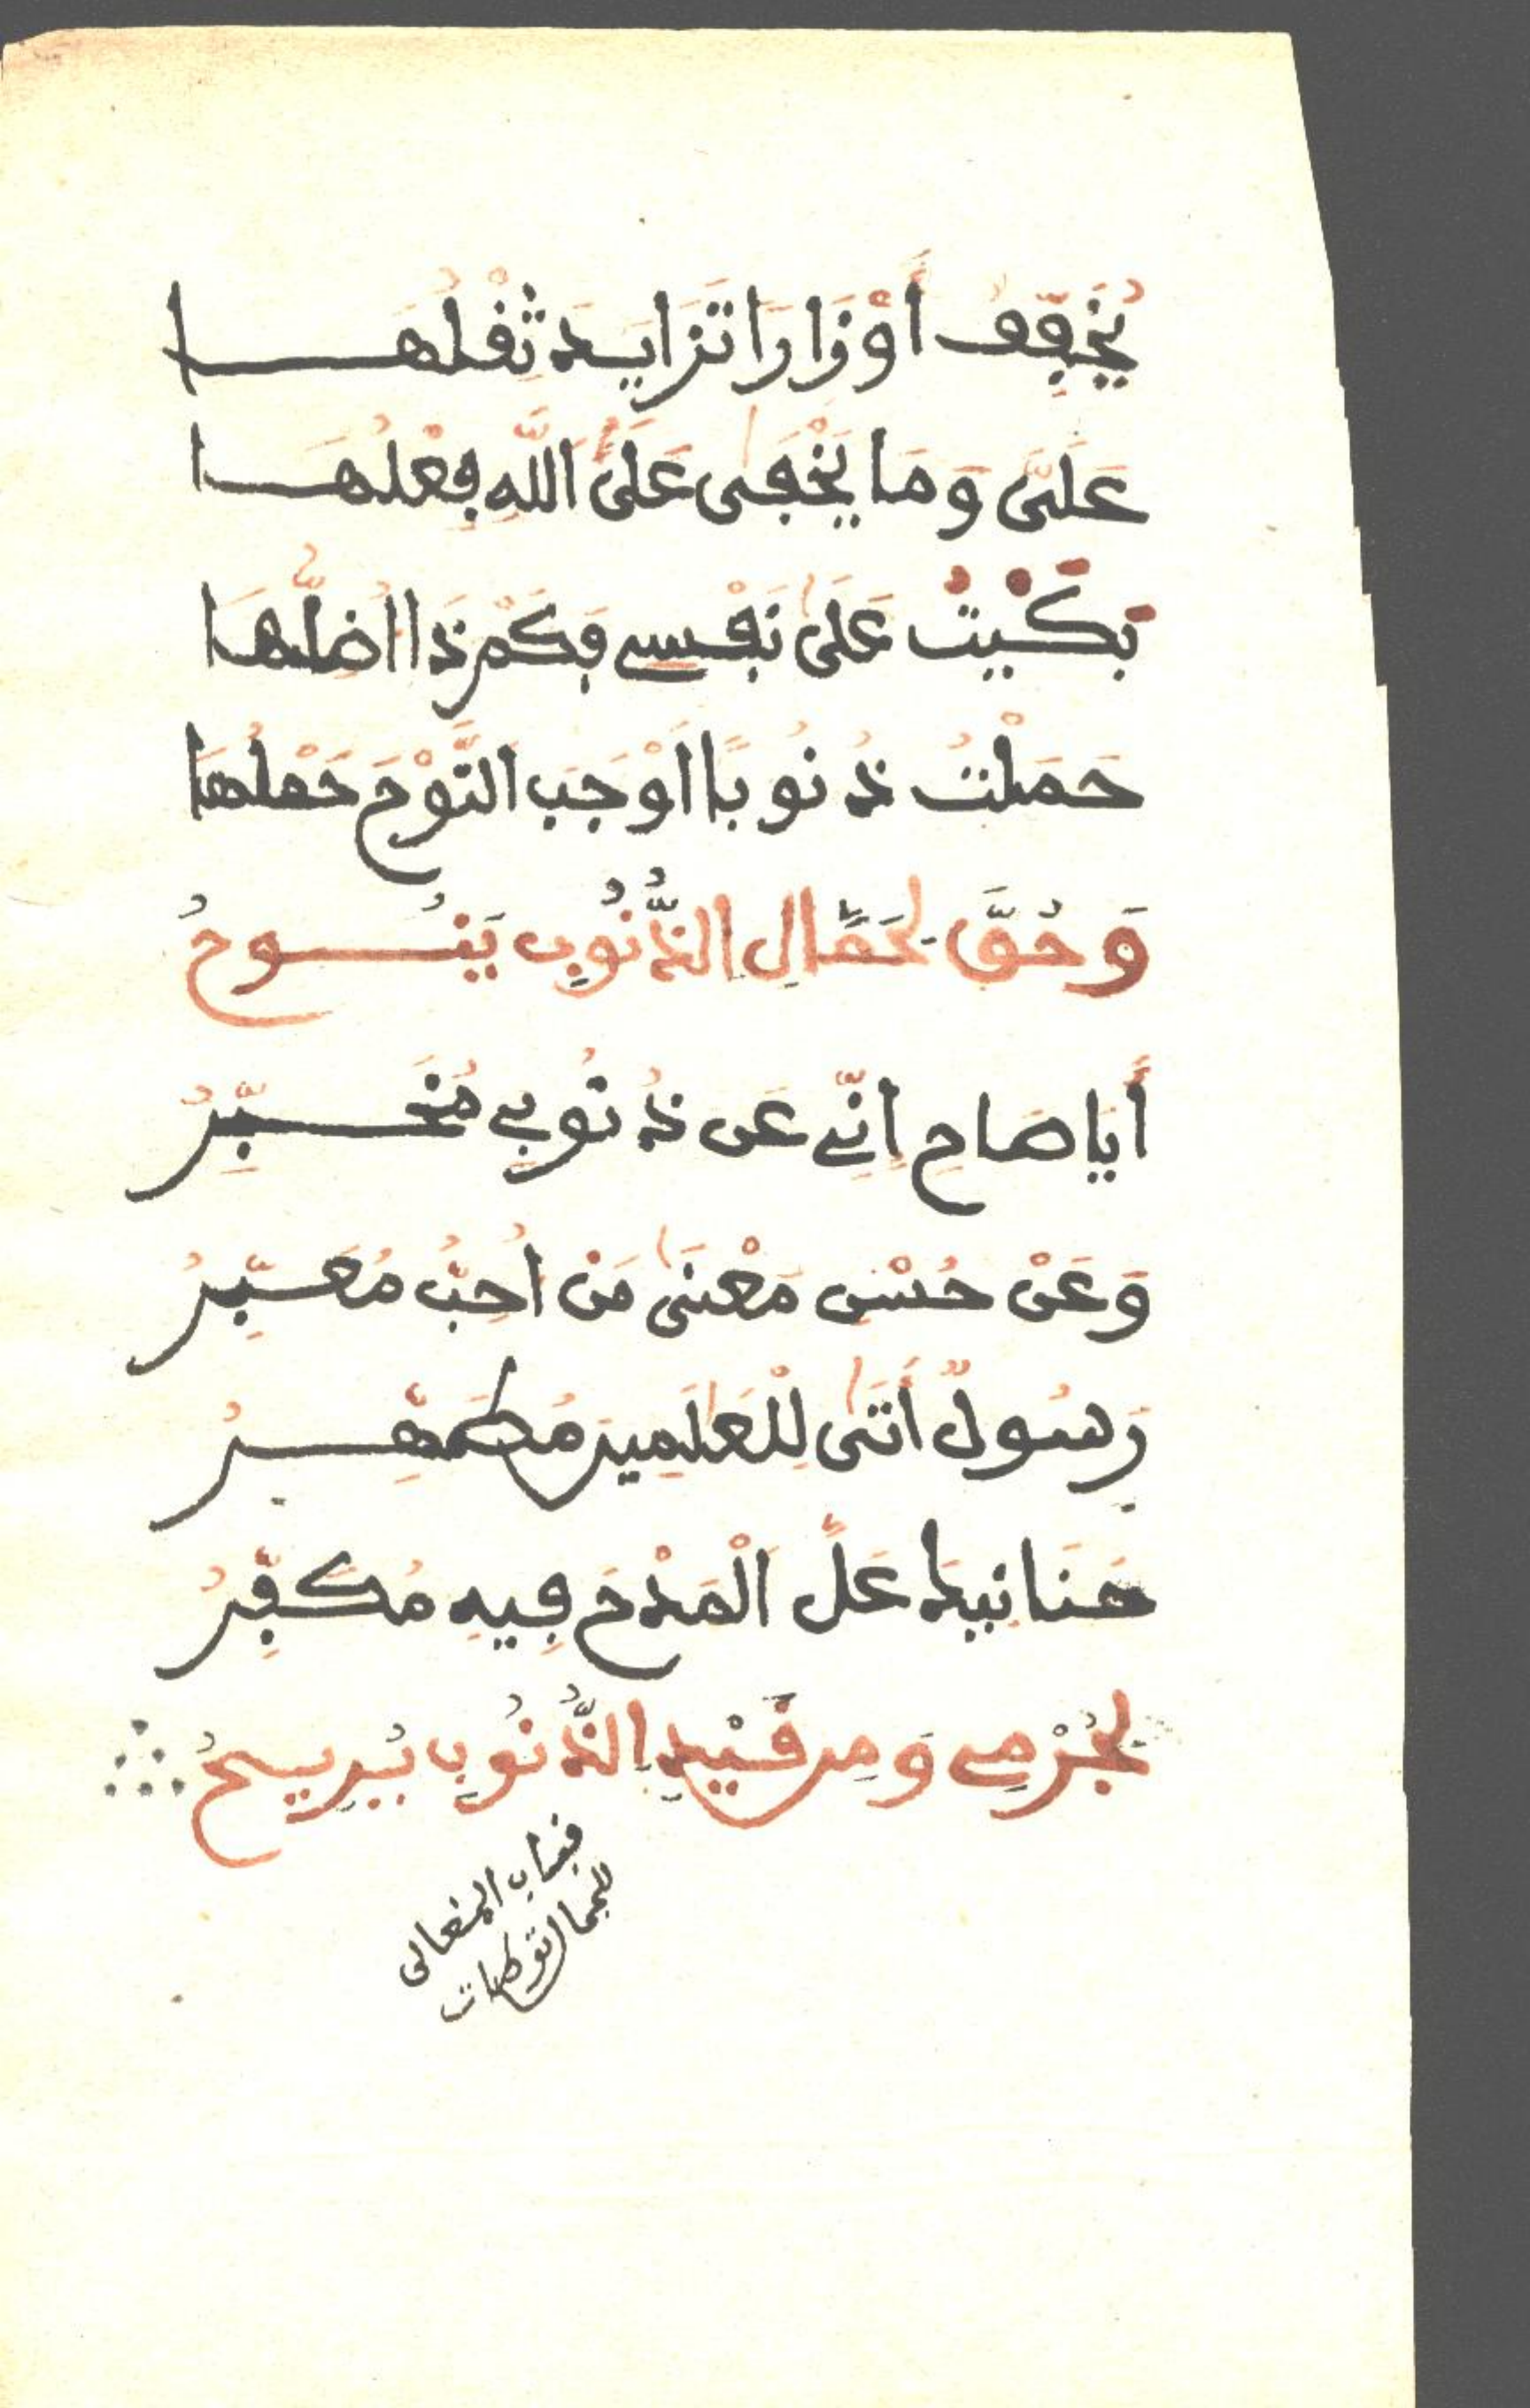 يُخَفِّفُ أَوْزَارًا تَزَايَدَ ثِقْلُهَا
عَلَيَّ وَمَا يَخْفَى عَلَى اللَّهِ فِعْلُهَا
بَكَيْتُ عَلَى نَفْسِي فَكَمْ ذَا أُضِلُّهَا
حَمَلْتُ ذُنُوبًا أَوْجَبَ النَّوْحَ حَمْلُهَا
وَحُقَّ لِحَمَّالِ الذُّنُوبِ يَنُوحُ
أَيَا صَاحِ إِنِّي عَن ذُنُوبِي مُخَبِّرُ
وَعَنْ حُسْنِ مَعْنَى مَنْ أُحِبُّ مُعَبِّرُ
رَسُولٌ أَتَى لِلْعَلَمِينَ مُطَهِّرُ
هَنَا نبيدا عَلَّ الْمَدْحَ فِيهِ مُكَفِّرُ
لِجُرْمِي وَمِن قَيْدِ الذُّنُوبِ يُرِيحُ